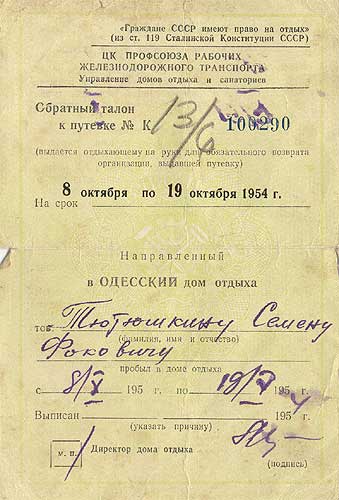 «Граждане СССР имеют право на отдых»
(из ст. 119 Сталинской Конституции СССР)
ЦК ПРОФСОЮЗА РАБОЧИХ
ЖЕЛЕЗНОДОРОЖНОГО ТРАНСПОРТА
Управление домов отдыха и санаториев
Обратный талон
к путевке № К 13/6 100290
(выдается отдыхающему на руки для обязательного возврата
организации, выдавшей путевку)
8 октября по 19 октября 1954 г.
На срок
Направленный
в ОДЕССКИЙ дом отдыха
тов. Тютюшкину Семену
(фамилия, имя и отчество)
Фоковичу
пробыл в доме отдыха
с 8/X 195 г. по 19/X 1954 г.
Выписан 1954 г.
(указать причину)
м. п. Директор дома отдыха
(подпись)